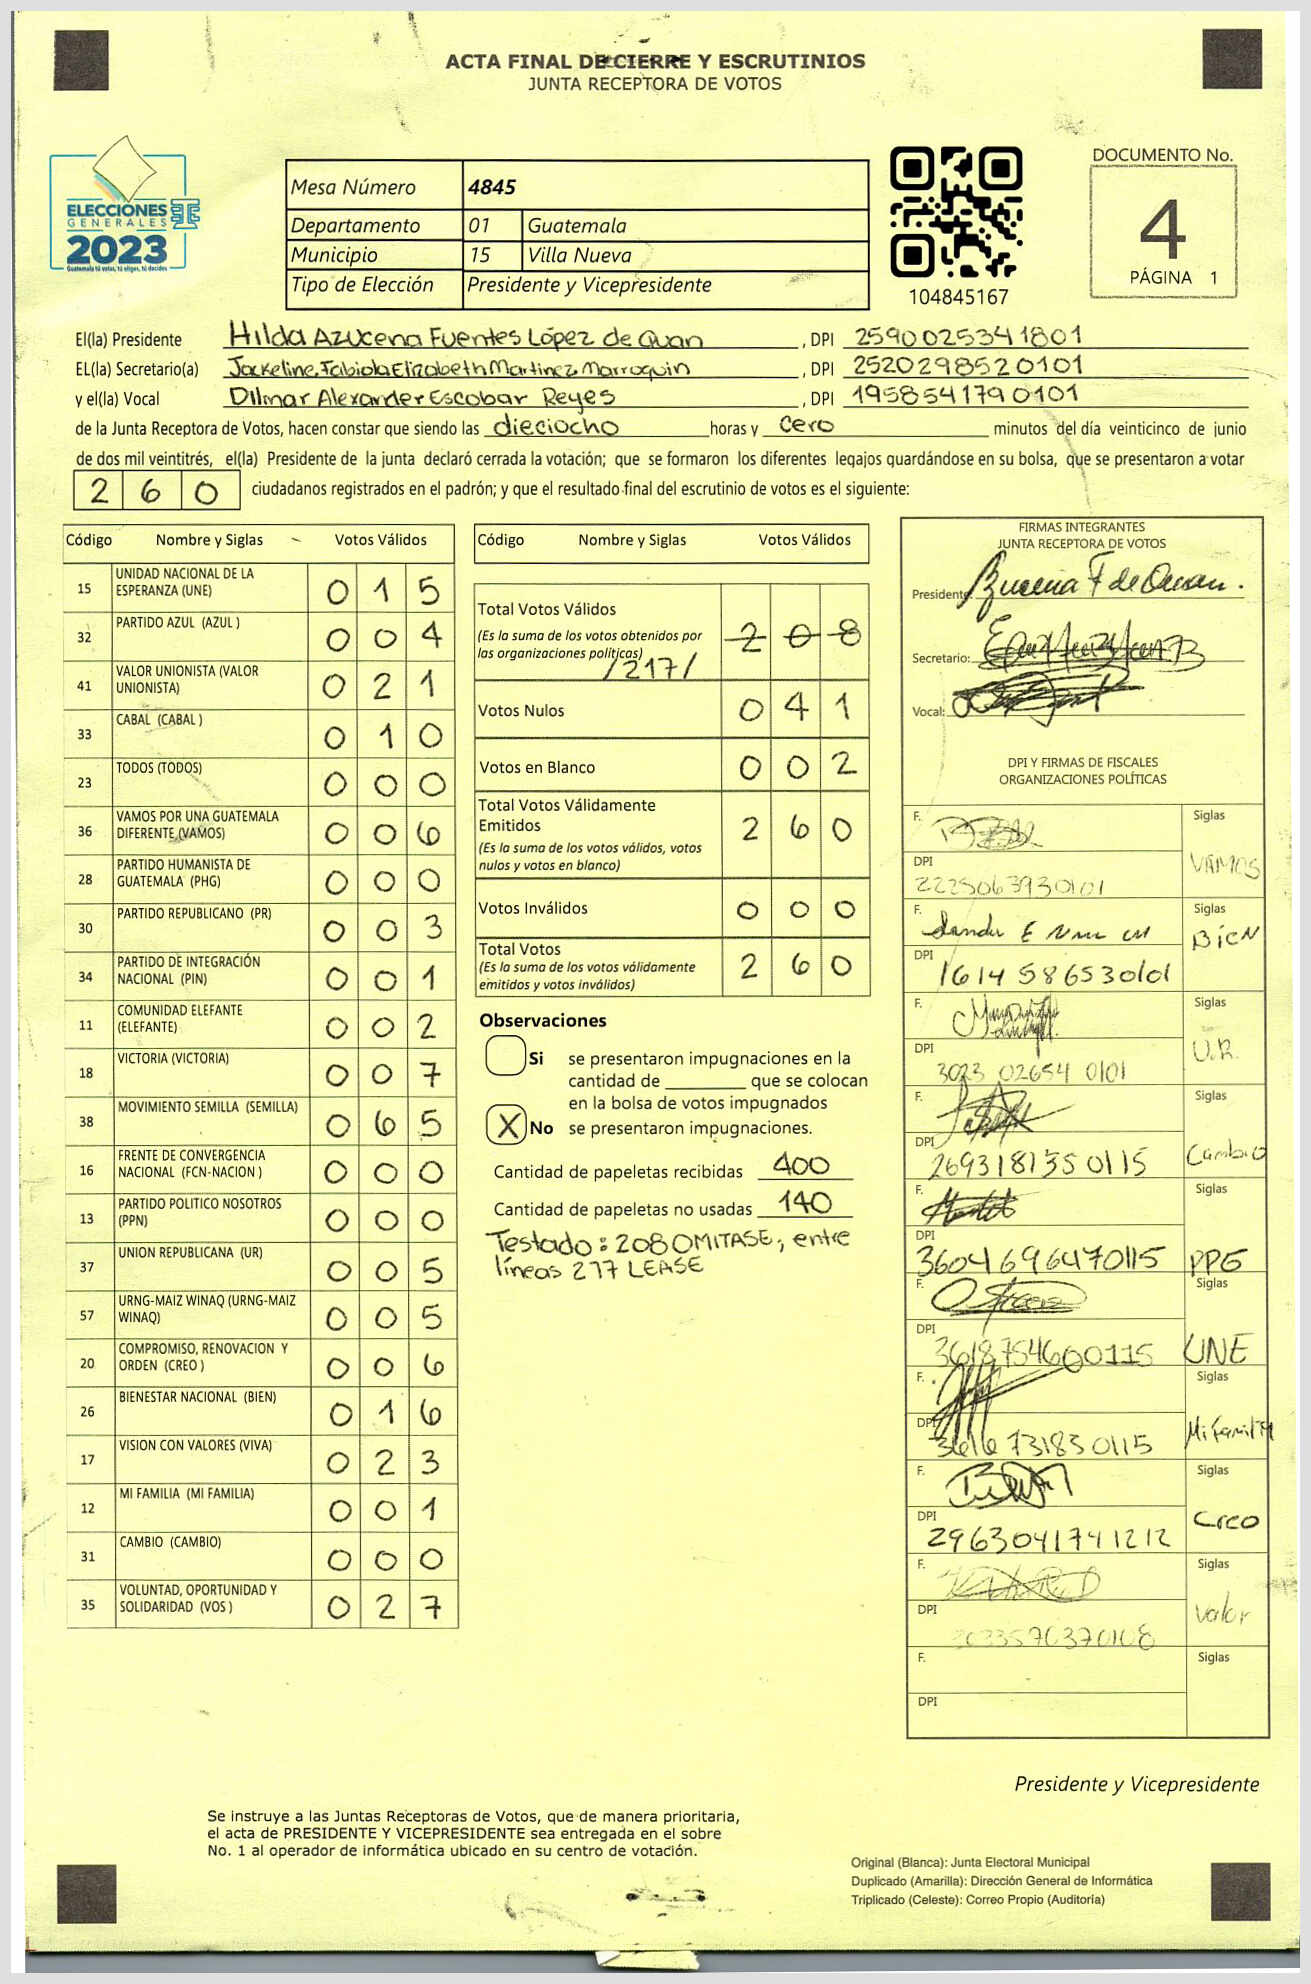 ACTA FINAL DE CIERRE Y ESCRUTINIOS
JUNTA RECEPTORA DE VOTOS
ELECCIONES
GENERALES
2023
Guatemala tú votas, tú eliges, tú decides
Mesa Número 4845
Departamento 01 Guatemala
Municipio 15 Villa Nueva
Tipo de Elección Presidente y Vicepresidente
104845167
DOCUMENTO No.
4
PÁGINA 1
El(la) Presidente Hilda Azucena Fuentes López de Quan , DPI 2590025341801
EL(la) Secretario(a) Jackeline Fabiola Elizabeth Martinez Marroquin , DPI 2520298520101
y el(la) Vocal Dilmar Alexander Escobar Reyes , DPI 1958541790101
de la Junta Receptora de Votos, hacen constar que siendo las dieciocho horas y cero minutos del día veinticinco de junio
de dos mil veintitrés, el(la) Presidente de la junta declaró cerrada la votación; que se formaron los diferentes legajos guardándose en su bolsa, que se presentaron a votar
260 ciudadanos registrados en el padrón; y que el resultado final del escrutinio de votos es el siguiente:
Código Nombre y Siglas Votos Válidos
15 UNIDAD NACIONAL DE LA ESPERANZA (UNE) 015
32 PARTIDO AZUL (AZUL ) 004
41 VALOR UNIONISTA (VALOR UNIONISTA) 021
33 CABAL (CABAL ) 010
23 TODOS (TODOS) 000
36 VAMOS POR UNA GUATEMALA DIFERENTE (VAMOS) 006
28 PARTIDO HUMANISTA DE GUATEMALA (PHG) 000
30 PARTIDO REPUBLICANO (PR) 003
34 PARTIDO DE INTEGRACIÓN NACIONAL (PIN) 001
11 COMUNIDAD ELEFANTE (ELEFANTE) 002
18 VICTORIA (VICTORIA) 007
38 MOVIMIENTO SEMILLA (SEMILLA) 065
16 FRENTE DE CONVERGENCIA NACIONAL (FCN-NACION ) 000
13 PARTIDO POLITICO NOSOTROS (PPN) 000
37 UNION REPUBLICANA (UR) 005
57 URNG-MAIZ WINAQ (URNG-MAIZ WINAQ) 005
20 COMPROMISO, RENOVACION Y ORDEN (CREO ) 006
26 BIENESTAR NACIONAL (BIEN) 016
17 VISION CON VALORES (VIVA) 023
12 MI FAMILIA (MI FAMILIA) 001
31 CAMBIO (CAMBIO) 000
35 VOLUNTAD, OPORTUNIDAD Y SOLIDARIDAD (VOS ) 027
Código Nombre y Siglas Votos Válidos
Total Votos Válidos 208
(Es la suma de los votos obtenidos por
las organizaciones políticas)
/217/
Votos Nulos 041
Votos en Blanco 002
Total Votos Válidamente
Emitidos 260
(Es la suma de los votos válidos, votos
nulos y votos en blanco)
Votos Inválidos 000
Total Votos 260
(Es la suma de los votos válidamente
emitidos y votos inválidos)
Observaciones
Si se presentaron impugnaciones en la
cantidad de ________ que se colocan
en la bolsa de votos impugnados
X No se presentaron impugnaciones.
Cantidad de papeletas recibidas 400
Cantidad de papeletas no usadas 140
Testado: 208 OMITASE, entre
líneas 217 LEASE
FIRMAS INTEGRANTES
JUNTA RECEPTORA DE VOTOS
Presidente: Azucena F de Quan.
Secretario:
Vocal:
DPI Y FIRMAS DE FISCALES
ORGANIZACIONES POLÍTICAS
F. Siglas
DPI VAMOS
2225063930101
F. Siglas
DPI BIEN
1614586530101
F. Siglas
DPI U.R.
3023 02654 0101
F. Siglas
DPI Cambio
2693181350115
F. Siglas
DPI
3604696470115 PPG
F. Siglas
DPI
3618754600115 UNE
F. Siglas
DPI Mi Familia
3616731830115
F. Siglas
DPI Creo
2963041741212
F. Siglas
DPI Valor
F. Siglas
DPI
Presidente y Vicepresidente
Se instruye a las Juntas Receptoras de Votos, que de manera prioritaria,
el acta de PRESIDENTE Y VICEPRESIDENTE sea entregada en el sobre
No. 1 al operador de informática ubicado en su centro de votación.
Original (Blanca): Junta Electoral Municipal
Duplicado (Amarilla): Dirección General de Informática
Triplicado (Celeste): Correo Propio (Auditoría)